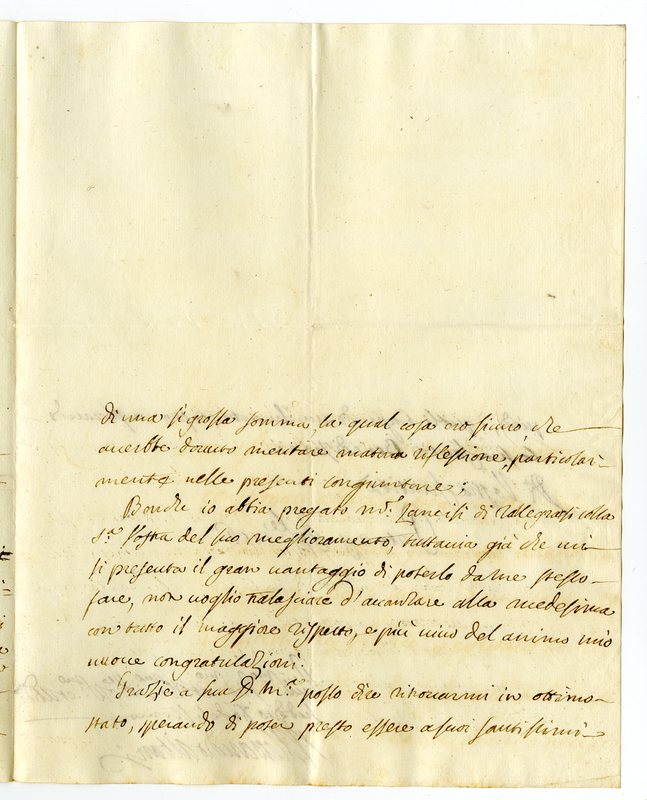 di una sì grossa somma, la qual cosa ero sicuro, che
averebbe dovuto meritare matura riflessione, particolar-
mente nelle presenti congiunture:
Bonche io abbia pregato m.r Lancisi di rallegrarsi colla
S.tà Vostra del suo meglioramento, tuttavia già che mi
si presenta il gran vantaggio di poterlo da me stesso
fare, non voglio tralasciare d'avanzare alla medesima
con tutto il maggiore rispetto, e più vivo del animo mio
nuove congratulazioni.
Grazie a sua D. M.tà posso dire ritrovarmi in ottimo
stato, sperando di poter presto essere a suoi santissimi